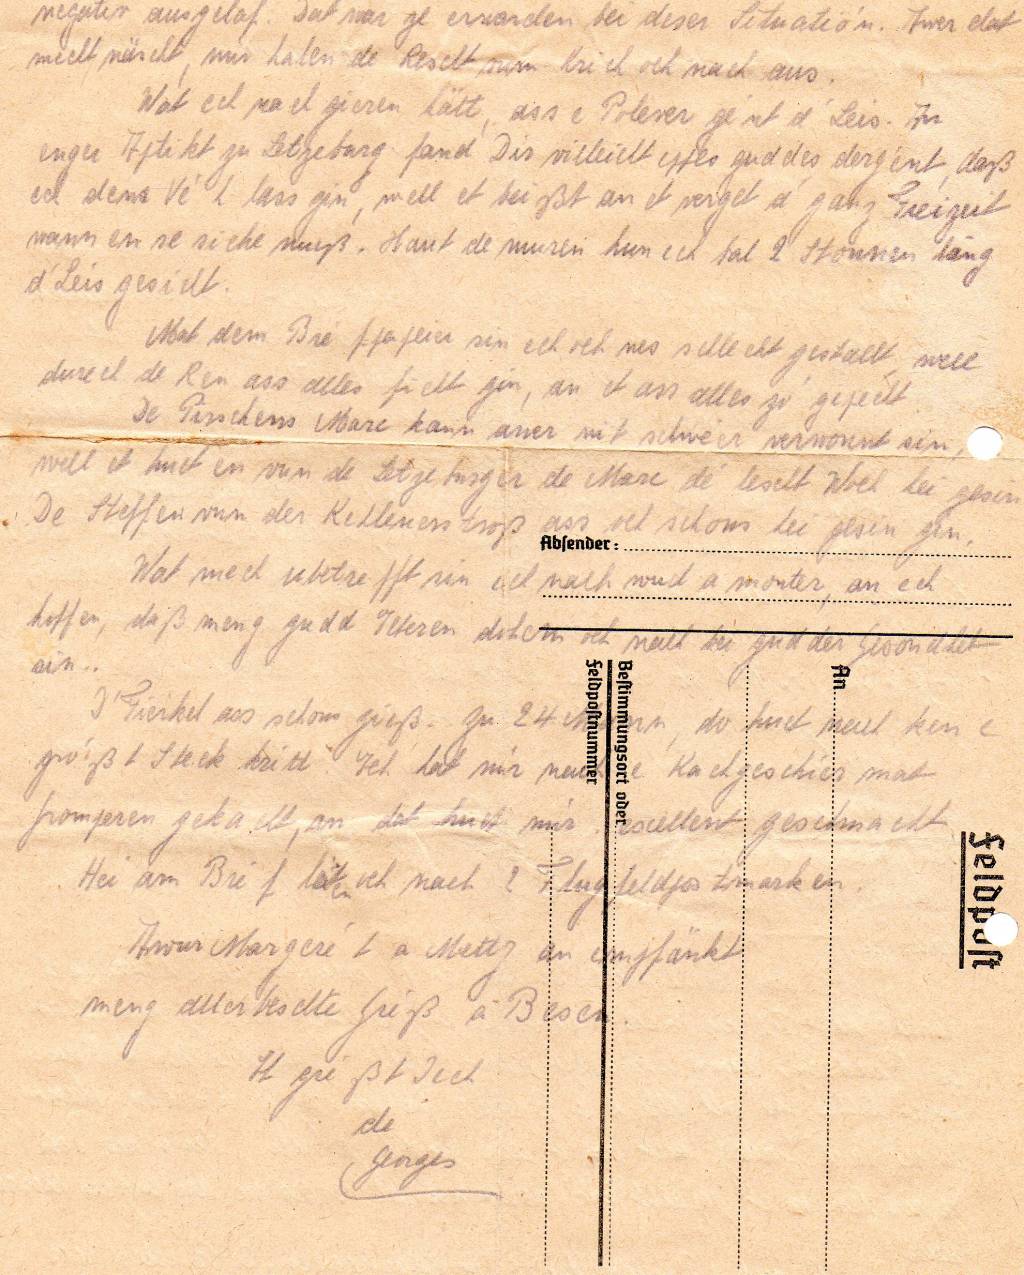 negativ ausgelaf. Dat war ze erwarden bei deser Situatio'n. Awer dat
mecht näischt, mir halen de Rescht vum Krich och nach aus.
Wat ech nach gieren hätt, ass e Polever ge'nt d' Leis. An
enger Aptikt zu Letzeburg fand Dir villeicht eppes guddes dergent, daß
ech dens Vé h lass gin, well et beißt an et verget d' ganz Freizeit
wann en se siche muß. Haut de muren hun ech bal 2 Stonnen lang
d' Leis gesicht.
Mat dem Bré fpapeier sin ech och nes schlecht gestallt, well
durech de Ren ass alles ficht gin, an et ass alles zo' gepecht
De Pirschens Marc kann awer nit schwéer verwonnt sin,
well et huet en vun de Letzeburger de Marc dé lescht Woch hei gesin
De Steffen vun der Kellenerstroß ass och schons hei gesin gin.
Absender:
Wat mech ubetrefft sin ech nach wud a monter, an ech
hoffen, daß meng gudd Elteren dohem och nach bei gudder Gesondhet
sin..
D' Fierkel ass schons gieß. Zu 24 Mann, do huet neach ken e
gro'ßt Steck kritt Ech hat mir nach e Kachgeschier mat
Gromperen gekacht, an dat huet mir excellent geschmacht
Hei am Bré f läten och nach 2 Flugfeldpostmarken.
Awur Margeré t a Mettz an empfänkt
meng allerbeschte Gréiß a Besen.
Et gré ßt Iech
de
Georges
An
Bestimmungsort oder
Feldpostnummer
Feldpost